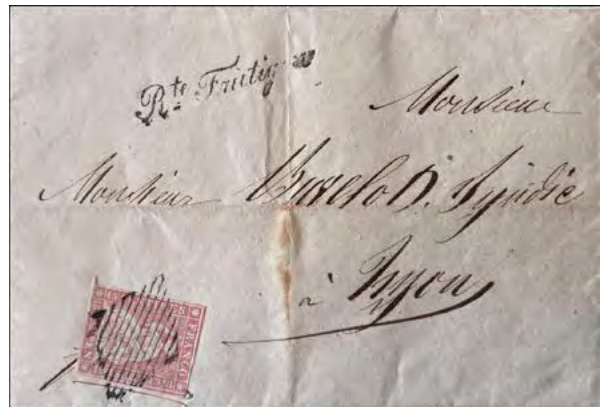 Rte Frutigen
Monsieur
Monsieur Burelo D. Syndic
à Nyon
FRANCO